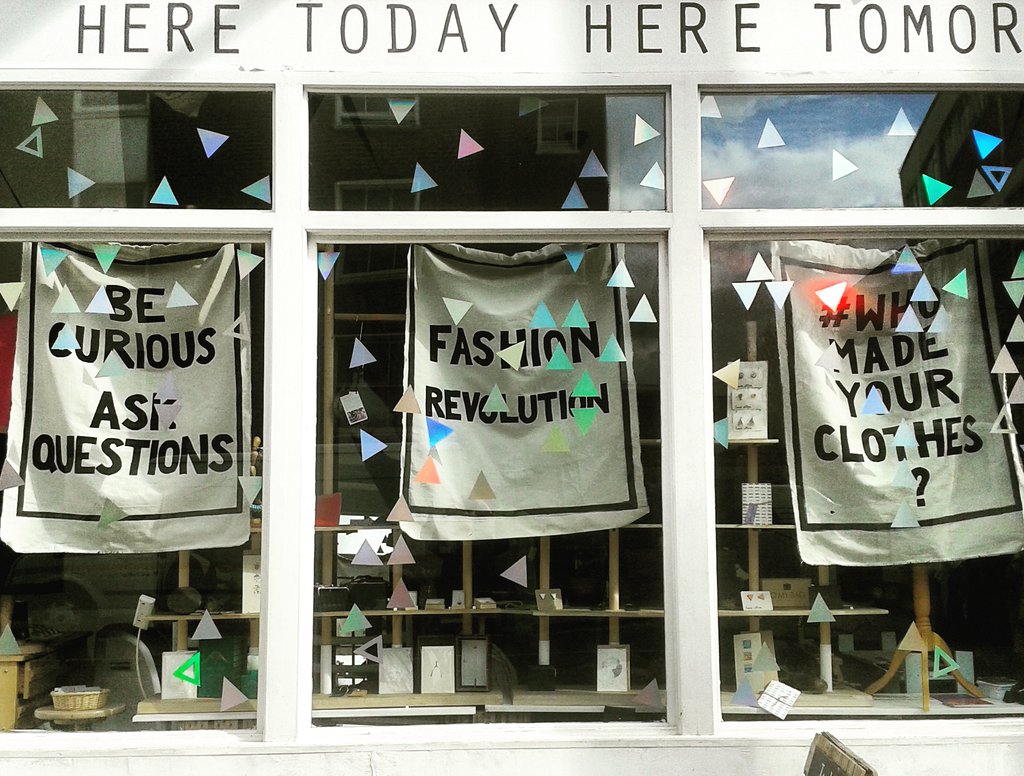 HERE TODAY HERE TOMOR
BE
CURIOUS
ASK
QUESTIONS
FASHION
REVOLUTION
#WHO
MADE
YOUR
CLOTHES
?